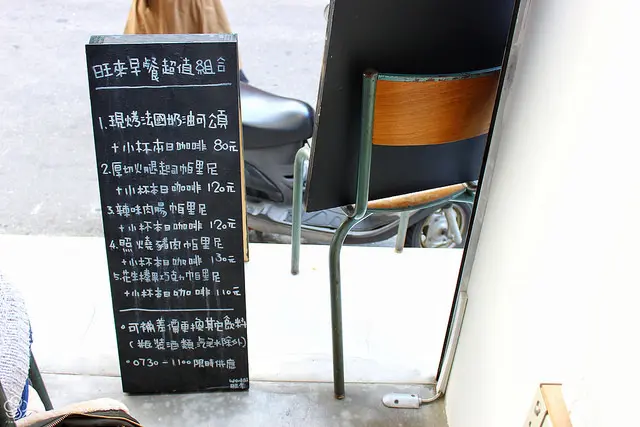 旺來早餐超值組合
1.現烤法國奶油可頌
+小杯本日咖啡 80元
2.厚切火腿起司帕里尼
+小杯本日咖啡 120元
3.辣味肉腸帕里尼
+小杯本日咖啡 120元
4.照燒豬肉帕里尼
+小杯本日咖啡 130元
5.花生榛果巧克力帕里尼
+小杯本日咖啡 110元
•可補差價更換其它飲料
(瓶裝酒類 氣泡水除外)
•0730-1100限時供應